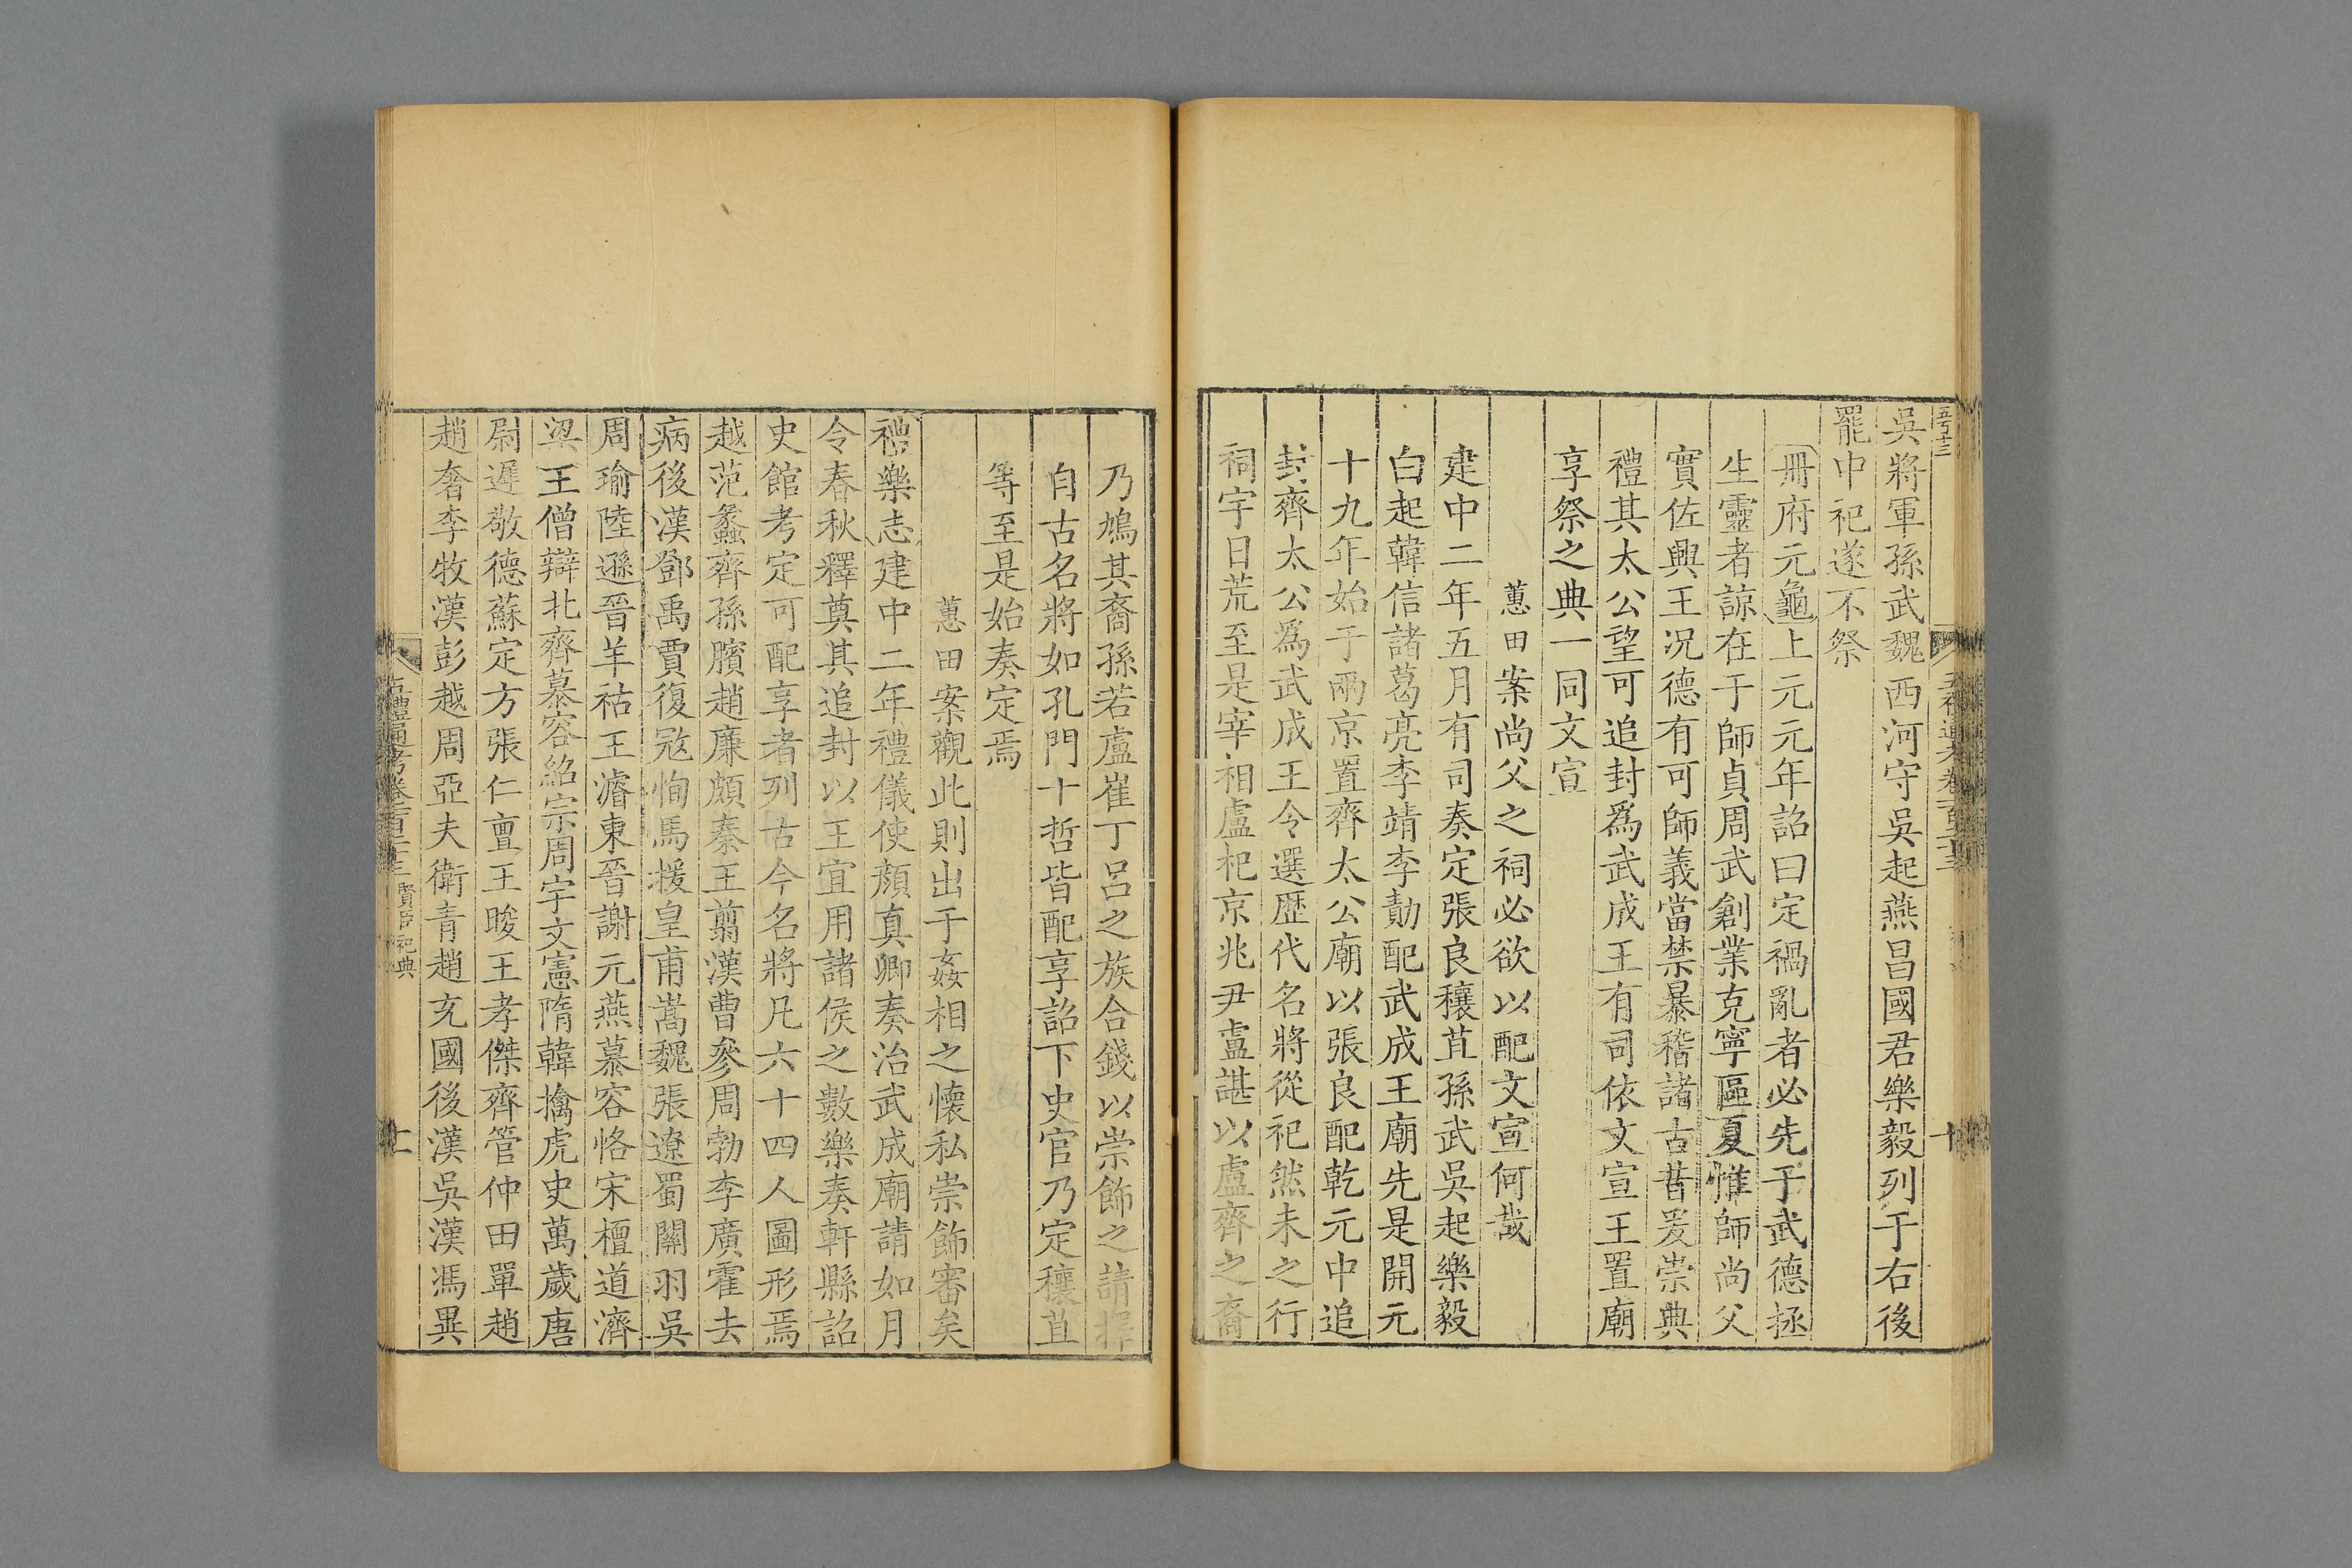 吳將軍孫武魏西河守吳起燕昌國君樂毅列于右後
罷中祀遂不祭
冊府元龜上元元年詔曰定禍亂者必先于武德拯
生靈者諒在于師貞周武創業克寧區夏惟師尚父
實佐興王况德有可師義當禁暴稽諸古昔爰崇典
禮其太公望可追封爲武成王有司依文宣王置廟
享祭之典一同文宣
蕙田案尚父之祠必欲以配文宣何哉
建中二年五月有司奏定張良穰苴孫武吳起樂毅
白起韓信諸葛亮李靖李勣配武成王廟先是開元
十九年始于兩京置齊太公廟以張良配乾元中追
封齊太公爲武成王令選歷代名將從祀然未之行
祠宇日荒至是宰相盧杞京兆尹盧諶以盧齊之裔
乃鳩其裔孫若盧崔丁呂之族合錢以崇飾之請擇
自古名將如孔門十哲皆配享詔下史官乃定穰苴
等至是始奏定焉
蕙田案觀此則出于姦相之懷私崇飾審矣
禮樂志建中二年禮儀使顏真卿奏治武成廟請如月
令春秋釋奠其追封以王宜用諸侯之數樂奏軒縣詔
史館考定可配享者列古今名將凡六十四人圖形焉
越范蠡齊孫臏趙廉頗秦王翦漢曹參周勃李廣霍去
病後漢鄧禹賈復寇恂馬援皇甫嵩魏張遼蜀關羽吳
周瑜陸遜晉羊祜王濬東晉謝元燕慕容恪宋檀道濟
梁王僧辯北齊慕容紹宗周宇文憲隋韓擒虎史萬歲唐
尉遲敬德蘇定方張仁亶王晙王孝傑齊管仲田單趙
趙奢李牧漢彭越周亞夫衛青趙充國後漢吳漢馮異
五禮通考卷一百二十三 賢臣祀典